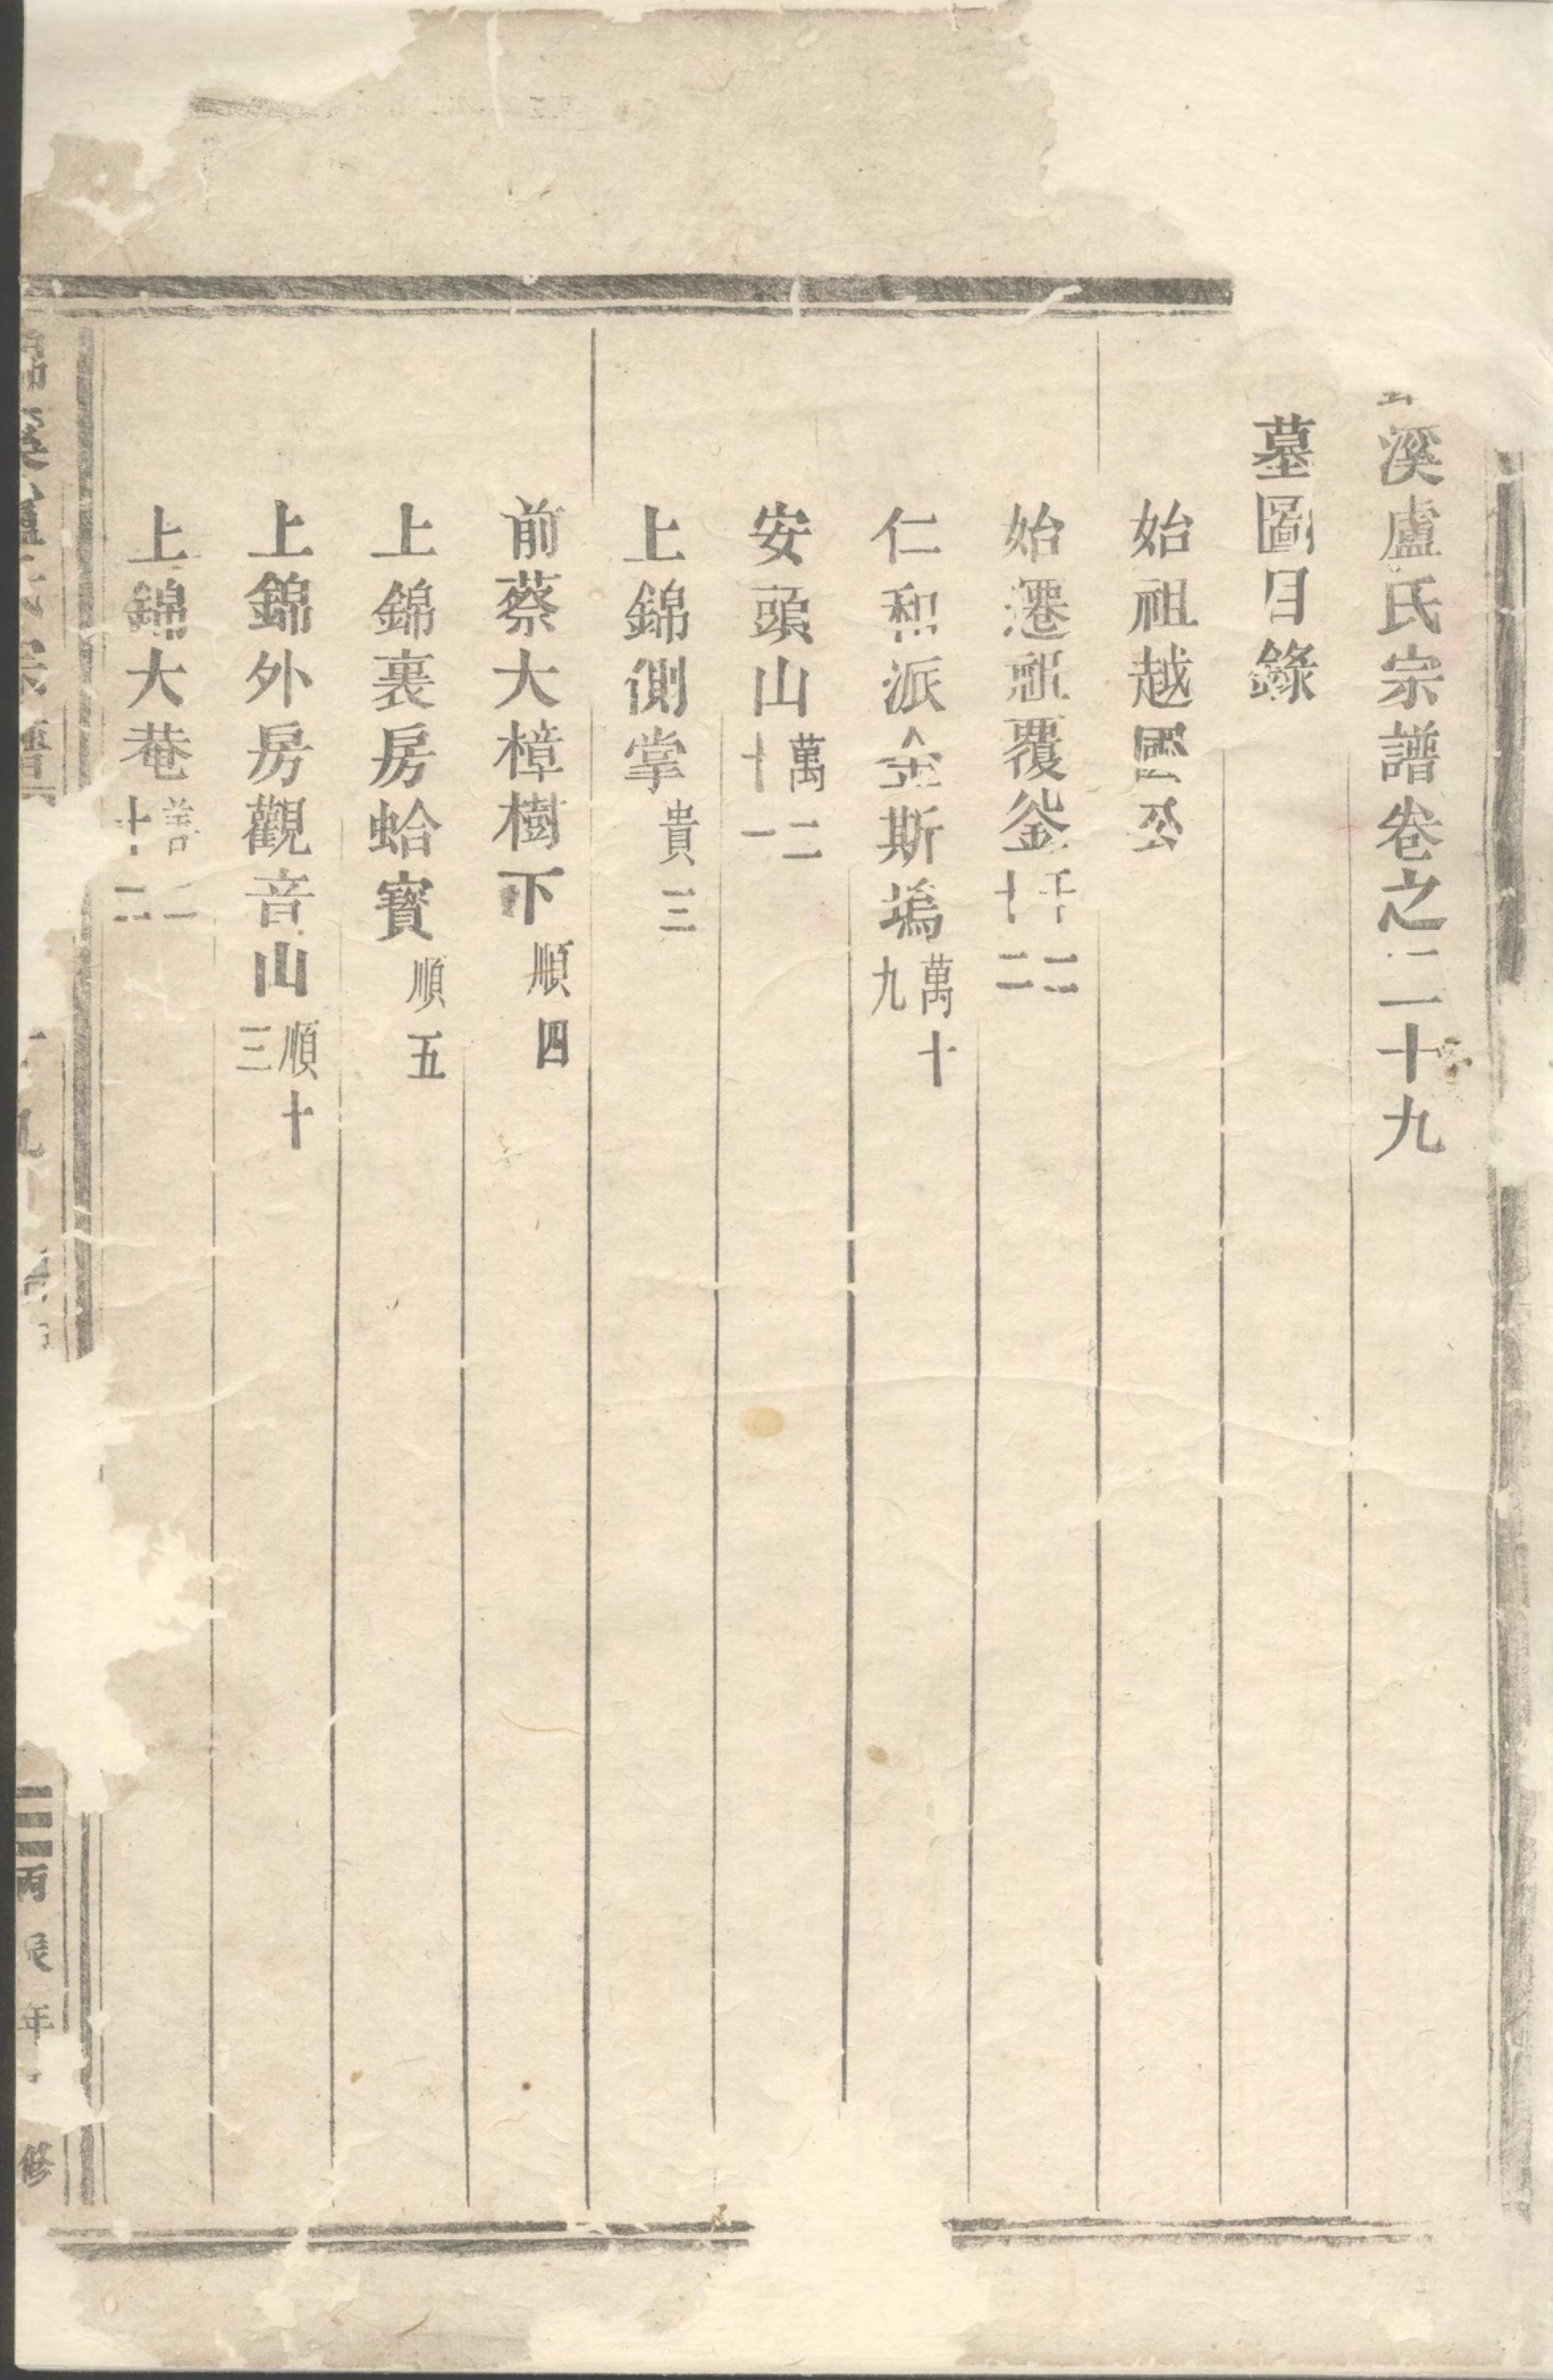 溪盧氏宗譜卷之二十九
墓圖目錄
始祖越國公
始遷祖覆釜千二十二
仁和派金斯塢萬十九
安頭山萬二十一
上錦側掌貴三
前蔡大樟樹下順四
上錦裏房蛤寳順五
上錦外房觀音山順十三
上錦大巷善二十二
錦溪盧氏宗譜
九
丙辰年
修